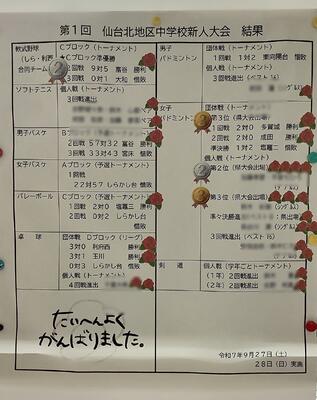 第1回 仙台北地区中学校新人大会 結果
軟式野球
(しら・利西
合同チーム
Cブロック(トーナメント)
Cブロック準優勝
2回戦 9対5 富谷 勝利
0対1 大和 惜敗
ソフトテニス
個人戦(トーナメント)
3回戦進出
男子バスケ
Bブロック(予選トーナメント)
2回戦 57対32 富谷 勝利
3回戦 33対43 宮床 惜敗
女子バスケ
Aブロック(予選トーナメント)
1回戦
22対57 しらかし台 惜敗
バレーボール
Cブロック(予選トーナメント)
1回戦 2対0 塩竈三 勝利
2回戦 0対2 しらかし台
惜敗
卓球
団体戦 Dブロック(リーグ)
3対0 利府西 勝利
3対1 玉川 勝利
0対3 しらかし台 惜敗
個人戦(トーナメント)
4回戦進出
男子
バドミントン
団体戦(トーナメント)
1回戦 1対2 東向陽台 惜敗
個人戦(トーナメント)
3回戦進出(ベスト16)
女子
バドミントン
団体戦(トーナメント)
第3位(県大会出場)
1回戦 2対0 多賀城 勝利
2回戦 2対0 成田 勝利
準決勝 1対2 塩竈二 惜敗
個人戦(トーナメント)
第2位(県大会出場)
第3位(県大会出場)
準々決勝進出(ベスト8):県出場
3回戦進出(ベスト16)
剣道
個人戦(学年ごとトーナメント)
(1年)2回戦進出
(2年)2回戦進出
たいへんよく
がんばりました。
令和7年9月27日(土)
28日(日)実施